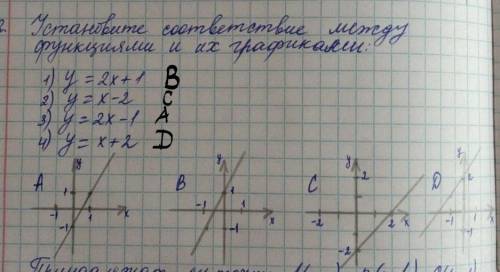 2. Установите соответствие между
функциями и их графиками:
1) y = 2x+1 B
2) y = x-2 C
3) y = 2x-1 A
4) y = x+2 D
A y 1 -1 1 -1 x
B y 1 -1 -1 x
C y 2 -2 2 -2 x
D y 2 -1 -1